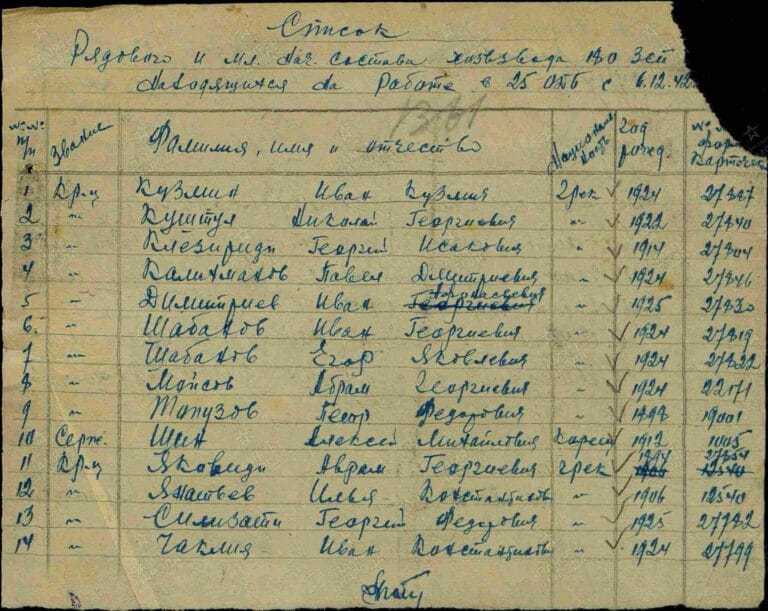 Список
Рядового и мл. нач. состава хозвзвода 180 Зсп
находящихся на работе в 25 ОПБ с 6.12.42
1381
№№ п/п Звание Фамилия, имя и отчество Национальность год рожд. №№ форм. карточек
1 Кр-ц Кузмин Иван Кузмич грек 1924 27837
2 " Куштул Николай Георгиевич " 1922 27840
3 " Клезириди Георгий Исакович " 1914 27804
4 " Калихманов Павел Дмитриевич " 1924 27846
5 " Димитриев Иван Георгиевич Афонасьевич " 1925 27830
6. " Шабанов Иван Георгиевич 1924 27819
7 " Шабанов Егор Яковлевич " 1924 27822
8 " Мойсов Абрам Георгиевич " 1924 22171
9 " Топузов Геор Федорович " 1898 19001
10 Серж. Шин Алексей Михайлович Кореец 1912 1005
11 Кр-ц Яковиди Авраам Георгиевич грек 1906 12540 27854
12 " Янатьев Илья Константинов " 1906 12540
13 " Силивасти Георгий Федорович " 1925 27782
14 " Чаклия Иван Константинов " 1924 27799